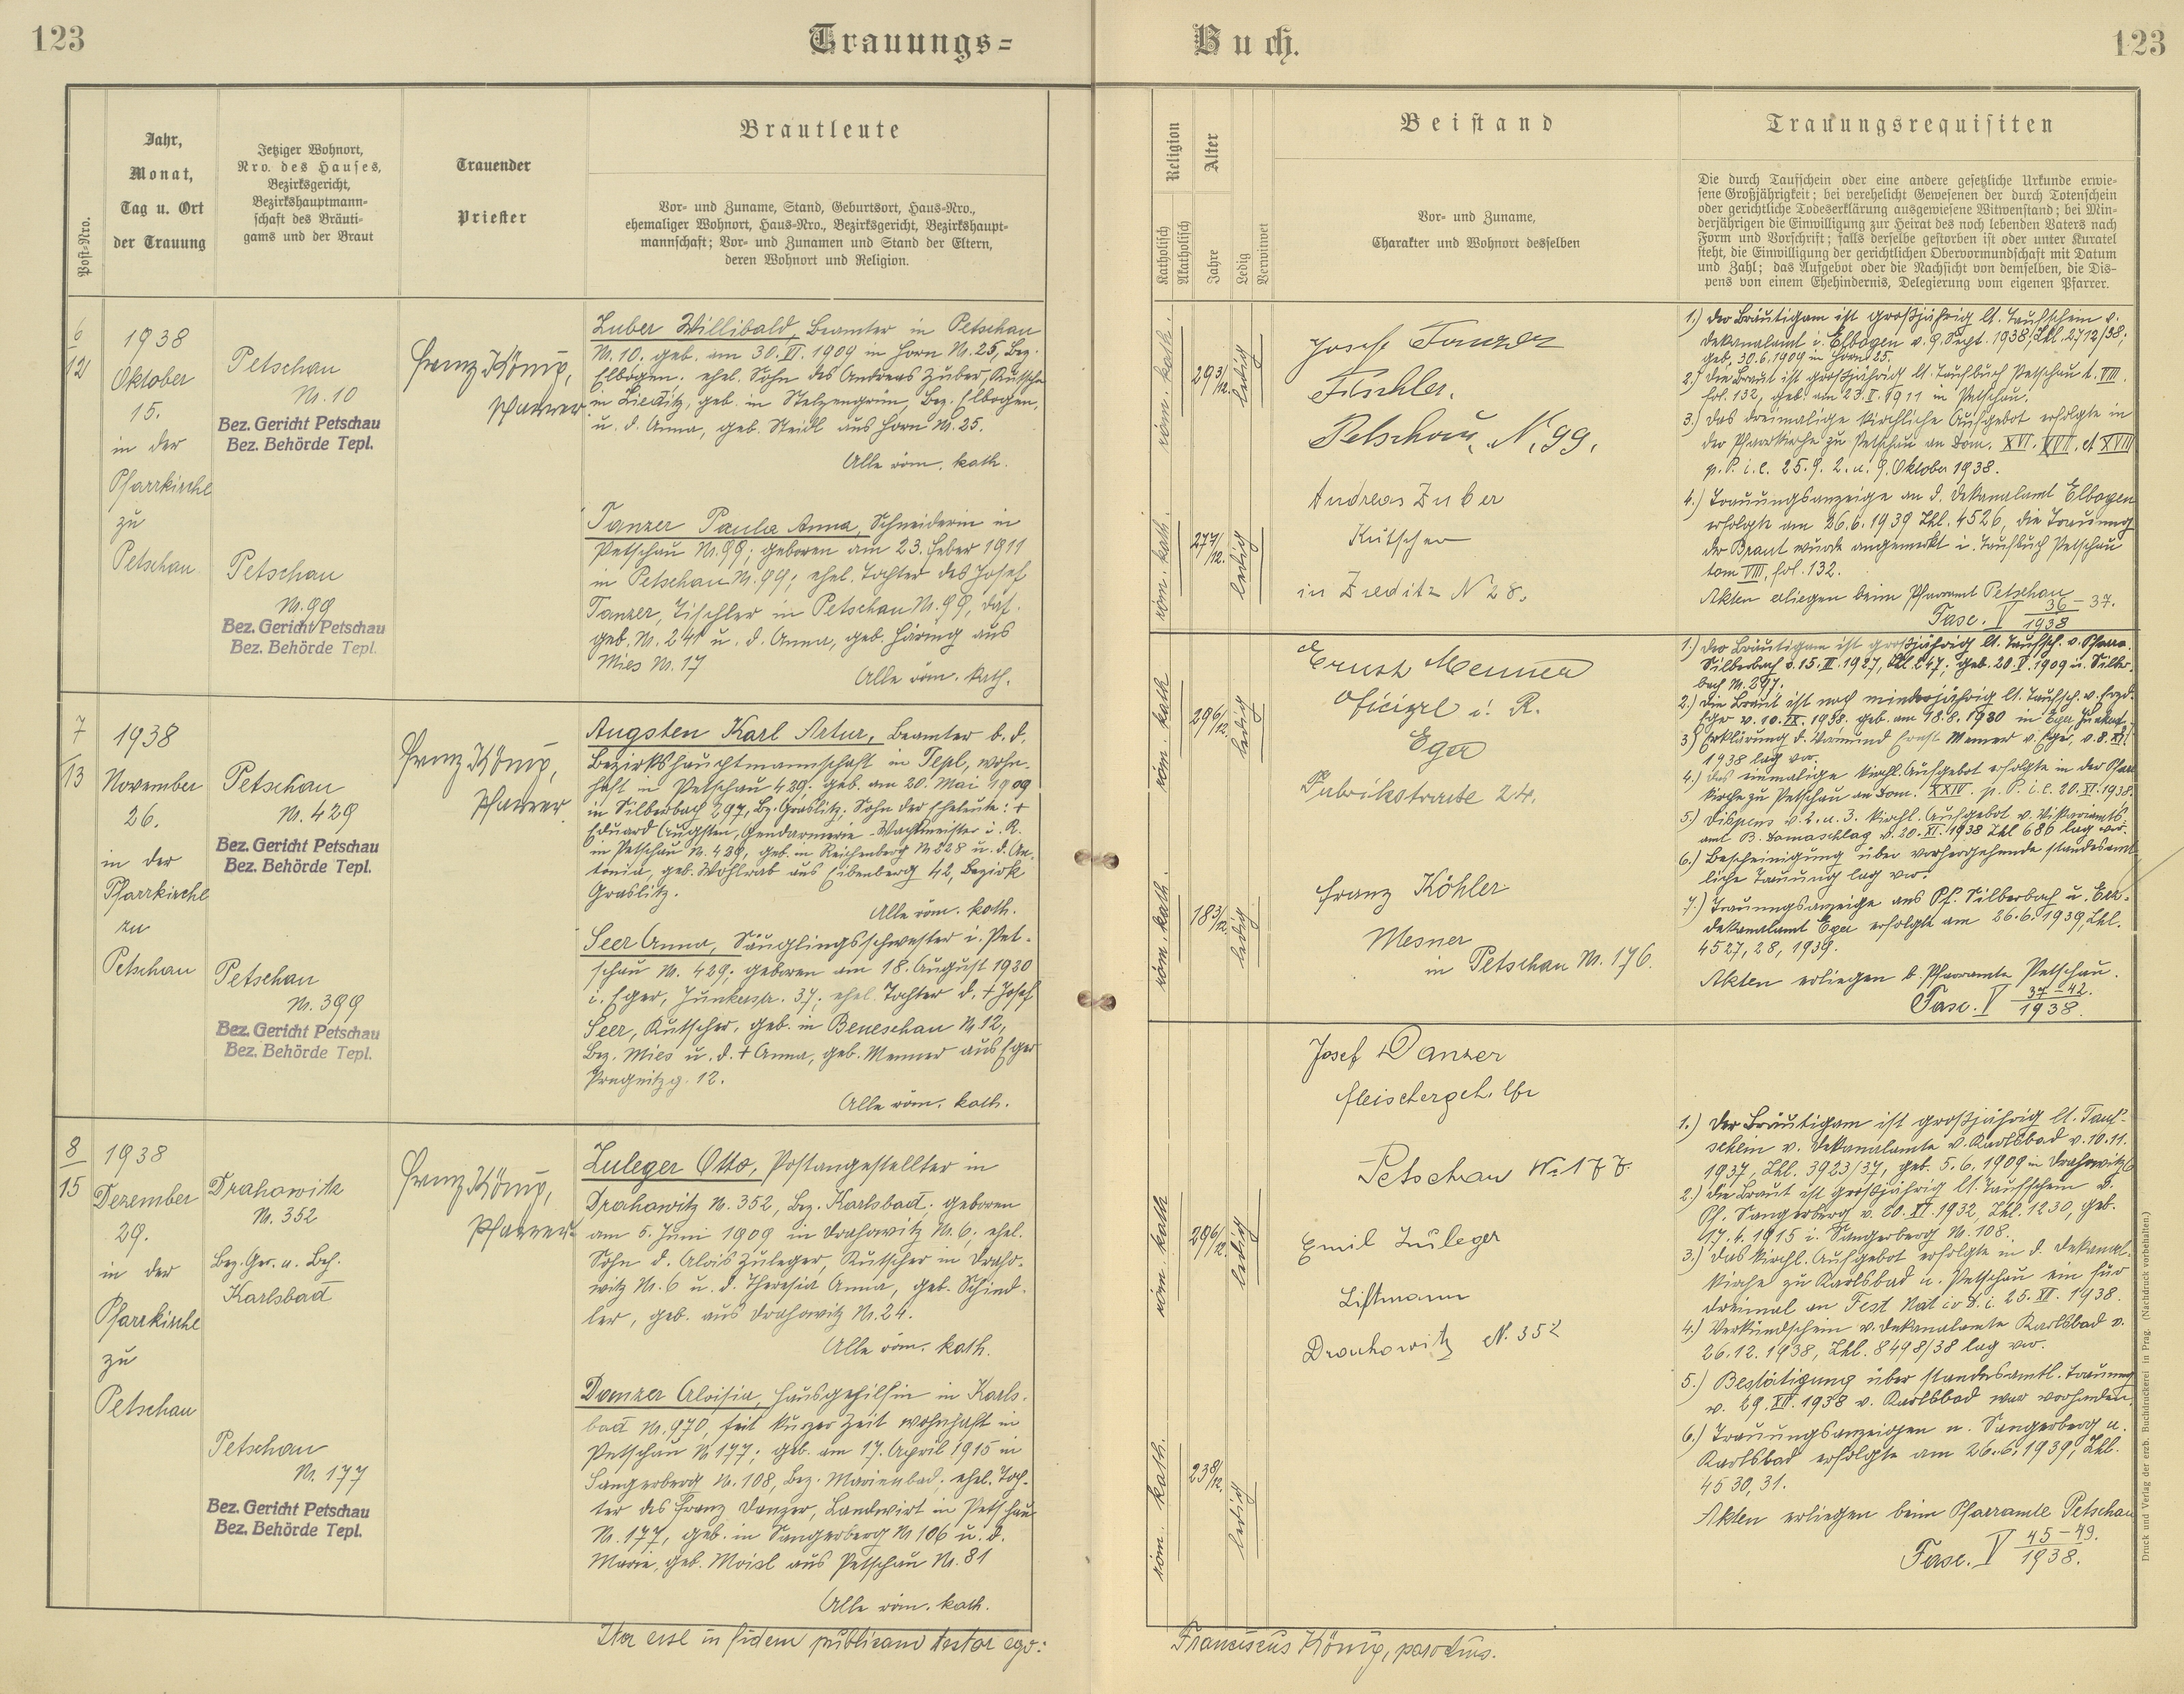 123
Trauungs=
Buch.
123
Post-Nro.
Jahr,
Monat,
Tag u. Ort
der Trauung
Jetziger Wohnort,
Nro. des Hauses,
Bezirksgericht,
Bezirkshauptmann-
schaft des Bräuti-
gams und der Braut
Trauender
Priester
Brautleute
Vor- und Zuname, Stand, Geburtsort, Haus-Nro.,
ehemaliger Wohnort, Haus-Nro., Bezirksgericht, Bezirkshaupt-
mannschaft; Vor- und Zunamen und Stand der Eltern,
deren Wohnort und Religion.
Religion
Katholisch
Akatholisch
Alter
Jahre
Ledig
Verwitwet
Beistand
Vor- und Zuname,
Charakter und Wohnort desselben
Trauungsrequisiten
Die durch Taufschein oder eine andere gesetzliche Urkunde erwie-
sene Großjährigkeit; bei verehelicht Gewesenen der durch Totenschein
oder gerichtliche Todeserklärung ausgewiesene Witwenstand; bei Min-
derjährigen die Einwilligung zur Heirat des noch lebenden Vaters nach
Form und Vorschrift; falls derselbe gestorben ist oder unter Kuratel
steht, die Einwilligung der gerichtlichen Obervormundschaft mit Datum
und Zahl; das Aufgebot oder die Nachsicht von demselben, die Dis-
pens von einem Ehehindernis, Delegierung vom eigenen Pfarrer.
6
12
1938
Oktober
15.
in der
Pfarrkirche
zu
Petschau
Petschau
N. 10
Bez. Gericht Petschau
Bez. Behörde Tepl.
Petschau
N. 99
Bez. Gericht Petschau
Bez. Behörde Tepl.
Franz König,
Pfarrer
Zuber Willibald, Beamter in Petschau
N. 10. geb. am 30. VI. 1909 in Horn N. 25, Bez.
Elbogen. ehel. Sohn des Andreas Zuber, Kutscher
in Zieditz, geb. in Stelzengrün, Bez. Elbogen,
u. d. Anna, geb. Steidl aus Horn N. 25.
Alle röm. kath.
Tanzer Paula Anna, Schneiderin in
Petschau N. 99; geboren am 23. Feber 1911
in Petschau N. 99; ehel. Tochter des Josef
Tanzer, Tischler in Petschau N. 99, das.
geb. N. 241 u. d. Anna, geb. Häring aus
Mies N. 17
Alle röm. kath.
röm. kath.
29 3/12.
ledig
röm. kath.
27 7/12.
ledig
Josef Tanzer
Tischler.
Petschau, N. 99.
Andreas Zuber
Kutscher
in Zieditz N 28.
1.) Der Bräutigam ist großjährig lt. Taufschein v.
Dekanalamt i. Elbogen v. 9. Sept. 1938, Zhl. 2712/38;
geb. 30.6.1909 in Horn 25.
2.) Die Braut ist großjährig lt. Taufbuch Petschau t. VIII.
fol. 132, geb. am 23. II. 1911 in Petschau.
3.) Das dreimalige kirchliche Aufgebot erfolgte in
der Pfarrkirche zu Petschau an Dom. XVI. XVII. et XVIII
p. P. i. e. 25. 9. 2. u. 9. Oktober 1938.
4.) Trauungsanzeige an d. Dekanalamt Elbogen
erfolgte am 26.6.1939 Zhl. 4526, die Trauung
der Braut wurde angemerkt i. Taufbuch Petschau
tom VIII, fol. 132.
Akten erliegen beim Pfarramt Petschau
Fasc. V 36-37. 1938
7
13
1938
November
26.
in der
Pfarrkirche
zu
Petschau
Petschau
N. 429
Bez. Gericht Petschau
Bez. Behörde Tepl.
Petschau
N. 399
Bez. Gericht Petschau
Bez. Behörde Tepl.
Franz König,
Pfarrer
Augsten Karl Artur, Beamter b. d.
Bezirkshauptmannschaft in Tepl, wohn-
haft in Petschau 429; geb. am 20. Mai 1909
in Silberbach 297, Bz. Graslitz; Sohn der Eheleute: +
Eduard Augsten, Gendarmerie-Wachtmeister i. R.
in Petschau N. 429, geb. in Reichenberg N 828 u. d. An-
tonia, geb. Wohlrab aus Eibenberg 42, Bezirk
Graslitz.
Alle röm. kath.
Seer Anna, Säuglingsschwester i. Pet-
schau N. 429; geboren am 18. August 1920
i. Eger, Junkerstr. 37; ehel. Tochter d. + Josef
Seer, Kutscher, geb. in Beneschau N 12,
Bez. Mies u. d. + Anna, geb. Menner aus Eger
12.
Alle röm. kath.
röm. kath
29 6/12.
ledig
röm. kath.
18 3/12.
ledig
Ernst Menner
Oficizel i. R.
Eger
24.
Franz Köhler
Mesner
in Petschau N. 176.
1.) Der Bräutigam ist großjährig lt. Taufsch. v. Pfarre
Silberbach v. 15. II. 1927, Zhl. 247; geb. 20. V. 1909 in Silber-
bach N. 297.
2.) Die Braut ist noch minderjährig lt. Taufsch. v. Erzd.
Eger v. 10. IX. 1938. geb. am 18.8.1920 in Eger
3.) Erklärung d. Vormund Ernst Menner v. Eger, v. 8. XI.
1938 lag vor.
4.) das einmalige kirchl. Aufgebot erfolgte in der Pfarr-
kirche zu Petschau an Dom. XXIV. p. P. i. e. 20. XI. 1938.
5.) Dispens v. 2. u. 3. kirchl. Aufgebot v. Vikariats-
amt B. Domaschlag v. 20. XI. 1938 Zhl 686 lag vor.
6.) Bescheinigung über vorhergehende standesamt-
liche Trauung lag vor.
7.) Trauungsanzeige ans Pf. Silberbach u. Erz-
dekanalamt Eger erfolgte am 26.6.1939, Zhl.
4527, 28, 1939.
Akten erliegen b. Pfarramte Petschau.
Fasc. V 37-42. 1938.
8
15
1938
Dezember
29.
in der
Pfarrkirche
zu
Petschau
Drahowitz
N. 352
Bez. Ger. u. Beh.
Karlsbad
Petschau
N. 177
Bez. Gericht Petschau
Bez. Behörde Tepl.
Franz König,
Pfarrer
Zuleger Otto, Postangestellter in
Drahowitz N. 352, Bez. Karlsbad; geboren
am 5. Juni 1909 in Drahowitz N. 6; ehel.
Sohn d. Alois Zuleger, Kutscher in Draho-
witz N. 6 u. d. Theresia Anna, geb. Schind-
ler, geb. aus Drahowitz N. 24.
Alle röm. kath.
Danzer Aloisia, Hausgehilfin in Karls-
bad N. 970, seit kurzer Zeit wohnhaft in
Petschau N 177; geb. am 17. April 1915 in
Sangerberg N. 108, Bez. Marienbad; ehel. Toch-
ter des Franz Danzer, Landwirt in Petschau
N. 177, geb. in Sangerberg N 106 u. d.
Marie, geb. Moisl aus Petschau N. 81
Alle röm. kath.
röm. kath
29 6/12.
ledig
röm. kath.
23 8/12.
ledig
Josef Danzer
Fleischergeh. lfr
Petschau No 177.
Emil Zuleger
Liftmann
Drahowitz N. 352
1.) Der Bräutigam ist großjährig lt. Tauf-
schein v. Dekanalamte v. Karlsbad v. 10.11.
1937, Zhl. 3923/37, geb. 5.6.1909 in Drahowitz 6
2.) Die Braut ist großjährig lt. Taufschein d.
Pf. Sangerberg v. 20. XI. 1932, Zhl. 1230, geb.
17.4.1915 i. Sangerberg N. 108.
3.) Das kirchl. Aufgebot erfolgte in d. Dekanal-
kirche zu Karlsbad u. Petschau ein für
dreimal an Fest Nativ d. i. 25. XII. 1938.
4.) Verkündschein v. Dekanalamte Karlsbad v.
26.12.1938, Zhl. 8498/38 lag vor.
5.) Bestätigung über standesamtl. Trauung
v. 29. XII. 1938 v. Karlsbad war vorhanden.
6.) Trauungsanzeigen n. Sangerberg u.
Karlsbad erfolgte am 26.6.1939, Zhl.
4530, 31.
Akten erliegen beim Pfarramte Petschau
Fasc. V 45-49. 1938.
Druck und Verlag der erzb. Buchdruckerei in Prag. (Nachdruck vorbehalten.)
Ita esse in fidem publicam testor ego:
Franciscus König, parochus.